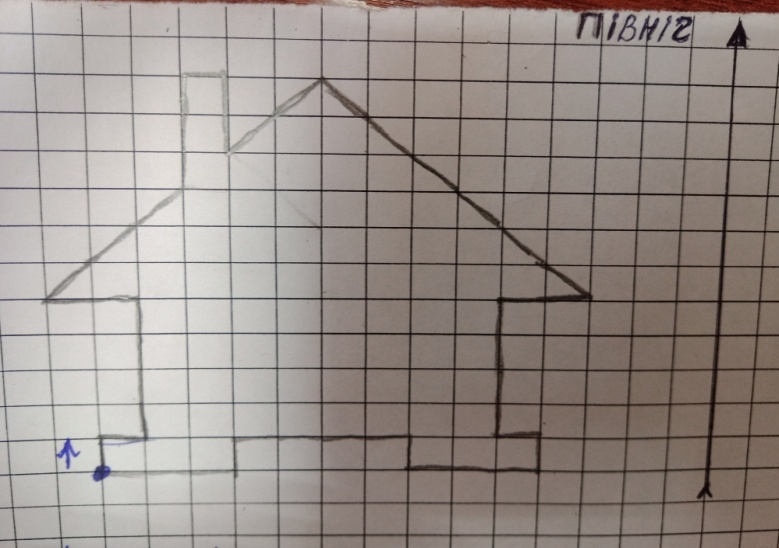 ПІВНІЧ